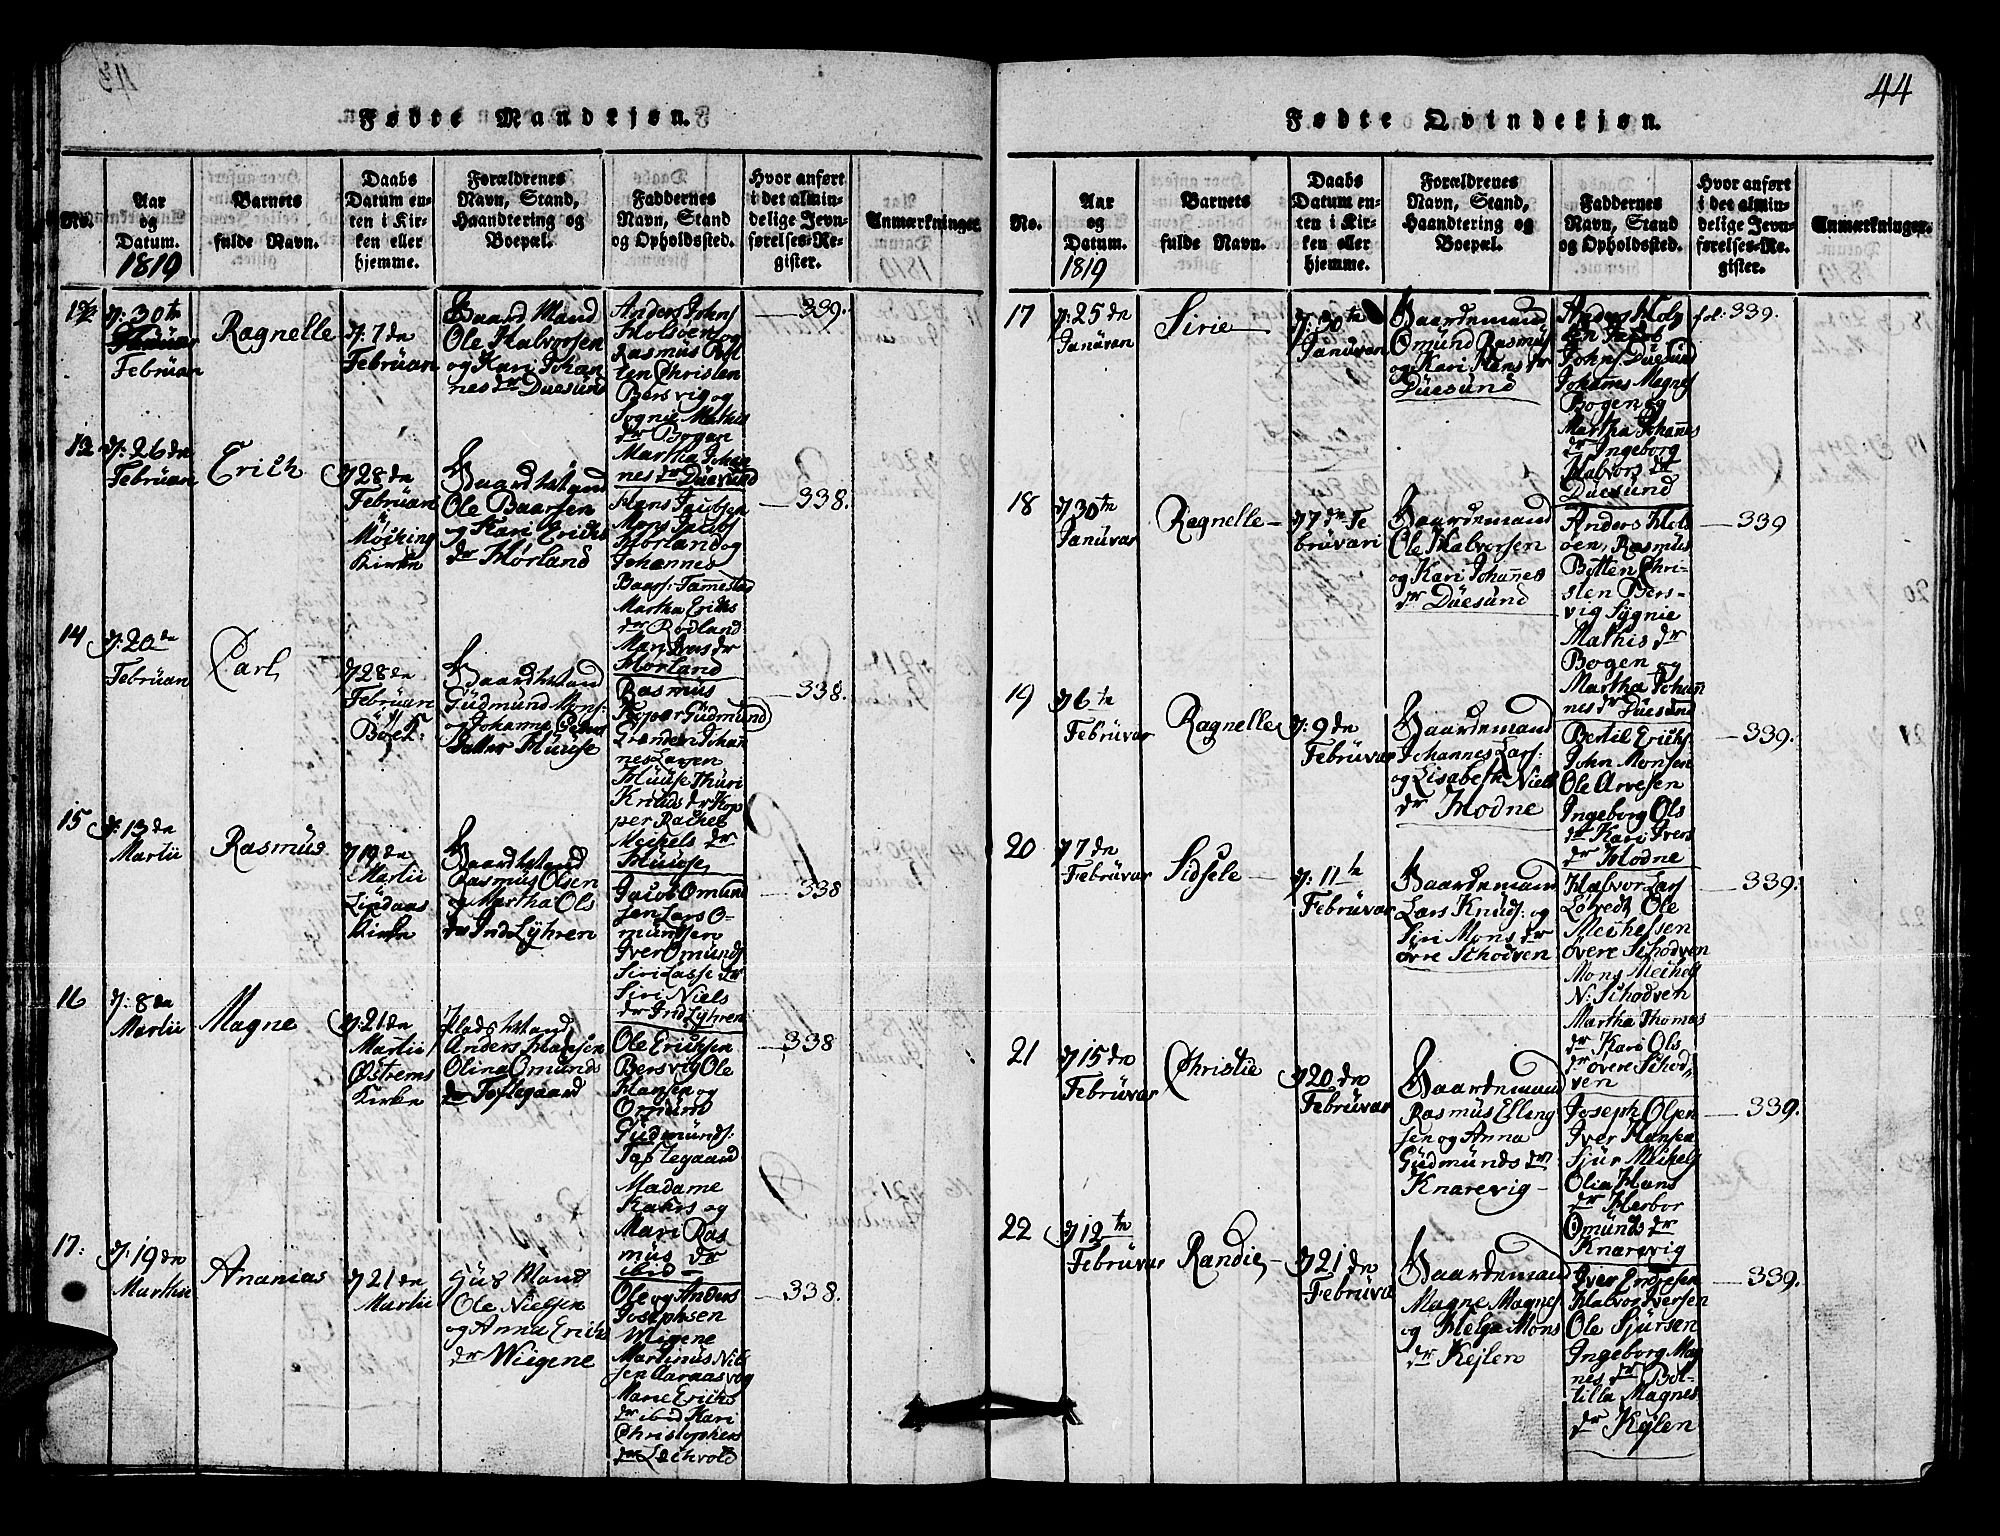 Fødte Mandkjøn.
No.
Aar
og
Datum.
1819
Barnets
fulde Navn.
Daabs
Datum en-
ten i Kir-
ken eller
hjemme.
Forældrenes
Navn, Stand,
Haandtering og
Boepæl.
Faddernes
Navn, Stand
og Opholdssted.
Hvor anført
i det almin-
delige Jevn-
førelses-Re-
gister.
Anmærkninger.
12
d: 30te
Februar
Ragnelle
d: 7de
Februar
Gaard Mand
Ole Halvorsen
og Kari Johan
nes dr Duesund
Anders Johns
Holsøen og
Rasmus Bot
ten Christen
Bersvig og
Sognie Mathis
dr Bogen
Martha Johan
nes dr Düesund
339.
13
d: 26de
Februar
Erich
d 28de
Februar
Kirke
Ole Baarsen
og Kari Erichs
dr Hørland
Hans Jacobsen
Mons Jacobs
Hørland og
Johannes
Baars: Tamestad
Martha Erichs
dr Rødland
Mari Ivers dr
Hørland
338.
14
d: 20de
Februar
Carl
d 28de
Februar
Güdmund Mons:
og Johanne Peders
Datter Hüüse
Rasmus
Koper Güdmund
nes Larsen
Hüüse Thuri
Knuds dr Kop
per Rachel
Meihels dr
Hüüse
338.
15
d: 13de
Martii
Rasmus
d 19de
Martii
Lindaas
Kirke
Rasmus Olsen
og Martha Ols
dr Ind Lÿhren
Jacob Omund
sen Lars O-
mundsen
Iver Omunds
Siri Lasse dr
Siri Niels
dr Ind Lÿhren
338
16
d: 8de
Martii
Magne
d. 21de
Martii
Østrems
Kirke
Anders Hansen
Olina Omunds
dr Toftegaard
Ole Erichsen
Bersvig Ole
Hansen og
Omund
Gudmunds:
Toftegaard
Madame
Kahrs og
Mari Ras
mus dr
ibid
338
17:
d: 19de
Martii
Ananias
d 21de
Martii
Huus Mand
Ole Nielsen
og Anna Erichs
dr Wiigene
Ole og Anders
Josephsen
Wigene
Martinus Niel
sen Aaraas og
Marie Erichs
dr ibid Kari
Christophers
338.
44
Fødte Qvindekjøn.
No.
Aar
og
Datum.
1819
Barnets
fulde Navn.
Daabs
Datum en-
ten i Kir-
ken eller
hjemme.
Forældrenes
Navn, Stand,
Haandtering og
Boepæl.
Faddernes
Navn, Stand
og Opholdssted.
Hvor anført
i det almin-
delige Jevn-
førelses-Re-
gister.
Anmærkninger.
17
d: 25de
Januvar
Sirie
d: 30te
Januvar
Gaardemand
Omund Rasmus
og Kari Hans dr
Düesund
Anders Hols
øen Jacob
Johns Düesund
Johannes Magnes
Bogen og
Martha Johannes
dr Ingeborg
Halvors dr
Düesund
fol: 339.
18
d 30te
Januvar
Ragnelle
d 7de Fe
bruvari
Gaardemand
Ole Halvorsen
og Kari Johannes
dr Düesund
Anders Hols
øen, Rasmus
Botten Chri-
sten Bers-
vig Sygnie
Mathis dr
Bogen og
Martha Johan
nes dr Düesund
339
19
d 6te
Februvar
Ragnelle
d: 9de
Februvar
Gaardemand
Johannes Lars:
og Lisabeth Niels
dr Hodne
Bertil Erichs
John Monsen
Ole Arvesen
Ingeborg Ols
dr Kari Ivers
dr Hodne
339.
20
d 7de
Februvar
Sidsele
d: 11te
Februvar
Gaardemand
Lars Knuds: og
Siri Mons dr
øvre Schodven
Halvor Lars
Ole
Meihelsen
øvere Schodven
Mons Meihels
N: Schodven
Martha Thomas
dr Kari Ols
dr øvere Schod
ven
339.
21
d 15de
Februvar
Christie
d 20de
Februvar
Gaardemand
Rasmus Elling
sen og Anna
Güdmunds dr
Knarevig
Joseph Olsen
Iver Hansen
Sjur Meihels
Olia Hans
dr Herbor
Omunds dr
Knarevig
339.
22
d 12te
Februvar
Randie
d 21de
Februva
Gaardemand
Magne Magnes
og Helga Mons
dr Kejlen
Halvor Iversen
Ole Sjursen
Ingeborg Mag
nes dr Bol-
lilla Magnes
dr Kejlen
339.